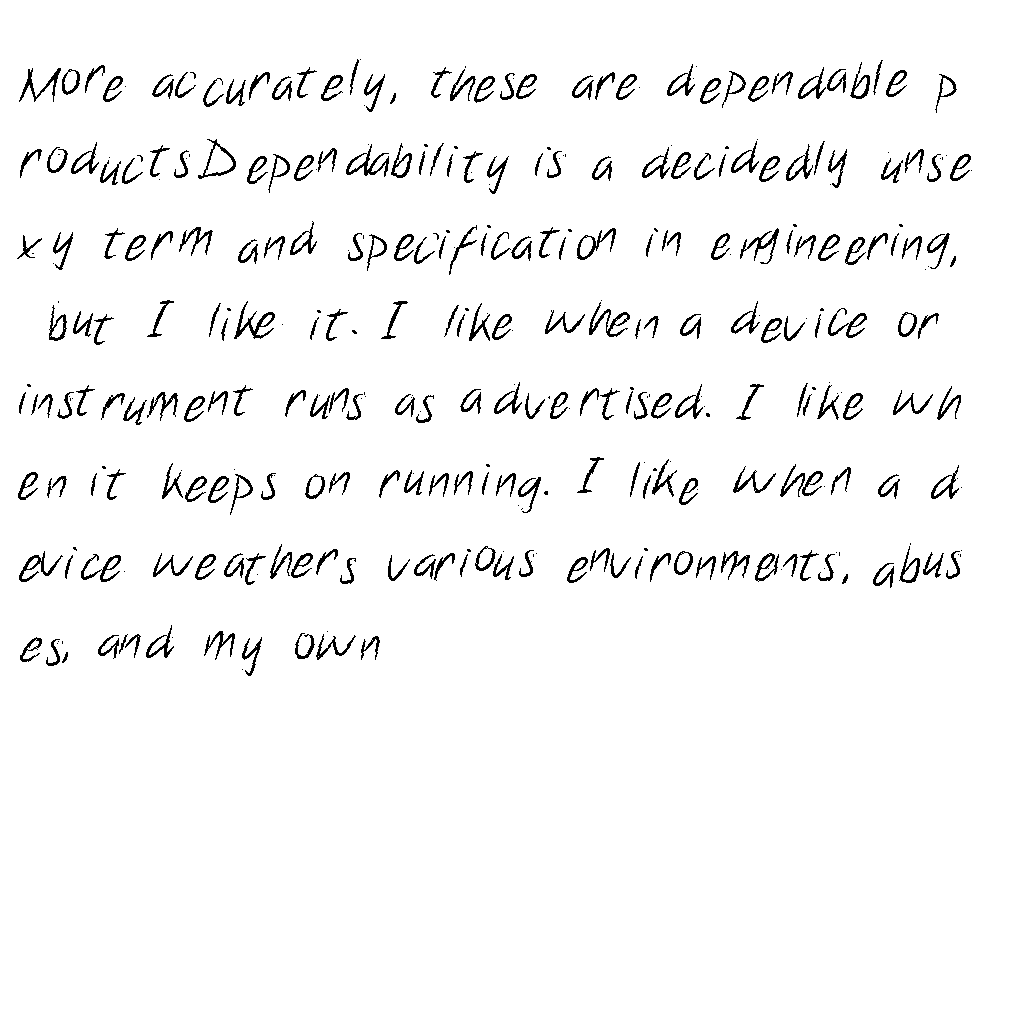 More accurately, these are dependable p
roductsDependability is a decidedly unse
xy term and specification in engineering,
but I like it. I like when a device or
instrument runs as advertised. I like wh
en it keeps on running. I like when a d
evice weathers various environments, abus
es, and my own